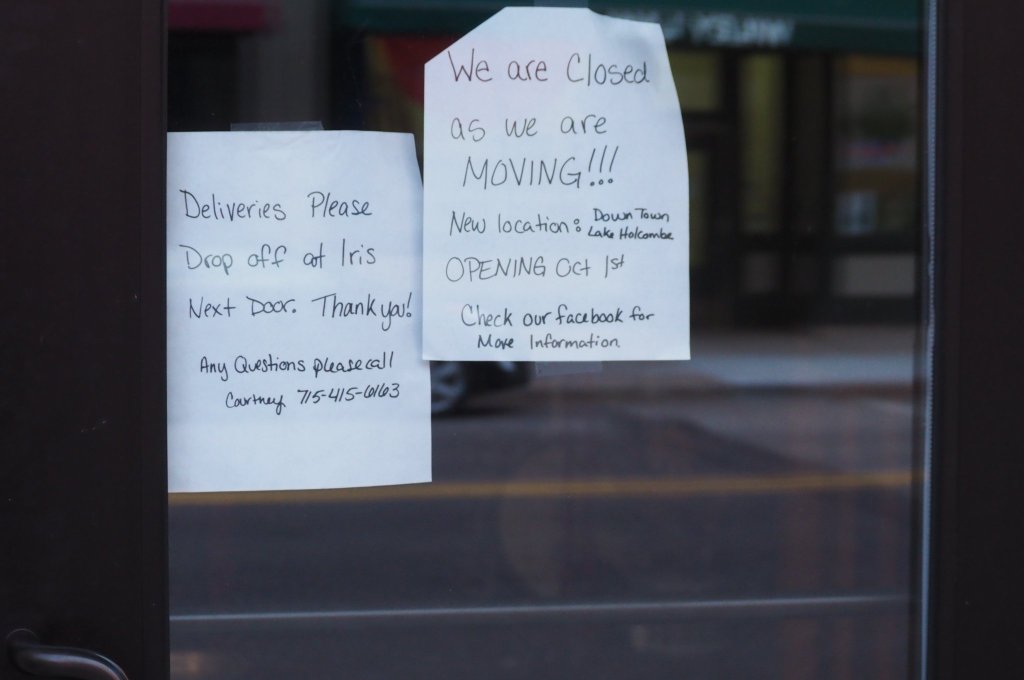 We are Closed
as we are
MOVING!!!
New location: Down Town
Lake Holcombe
OPENING Oct 1st
Check our facebook for
More Information
Deliveries Please
Drop off at Iris
Next Door. Thank you!
Any Questions please call
Courtney 715-415-6163